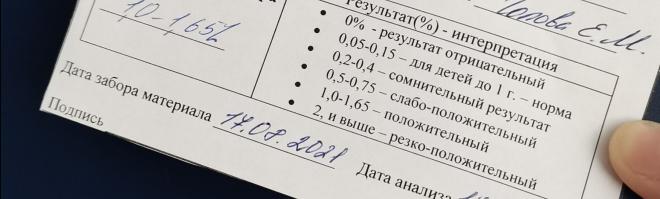 Попова Е.М.
Результат(%) - интерпретация
1,0-1,65%
0% - результат отрицательный
0,05-0,15 – для детей до 1 г. – норма
0,2-0,4 – сомнительный результат
0,5-0,75 – слабо-положительный
1,0-1,65 – положительный
2, и выше – резко-положительный
Дата забора материала 17.08.2021
Дата анализа
Подпись